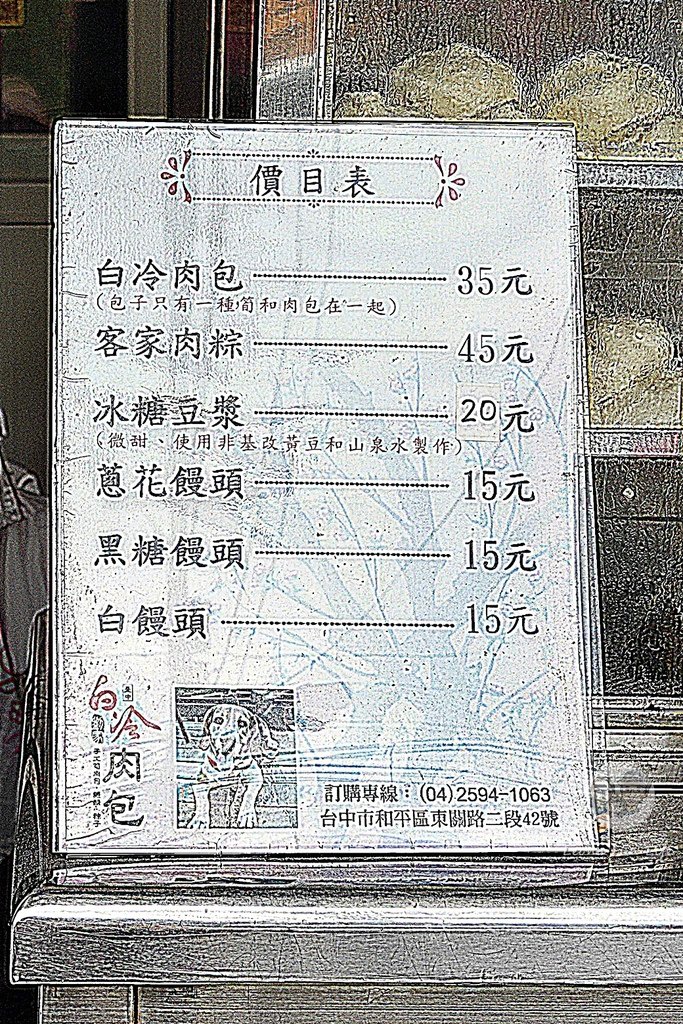 價目表
白冷肉包 35元
(包子只有一種筍和肉包在一起)
客家肉粽 45元
冰糖豆漿 20元
(微甜、使用非基改黃豆和山泉水製作)
蔥花饅頭 15元
黑糖饅頭 15元
白饅頭 15元
白冷
肉包
訂購專線：(04)2594-1063
台中市和平區東關路二段42號